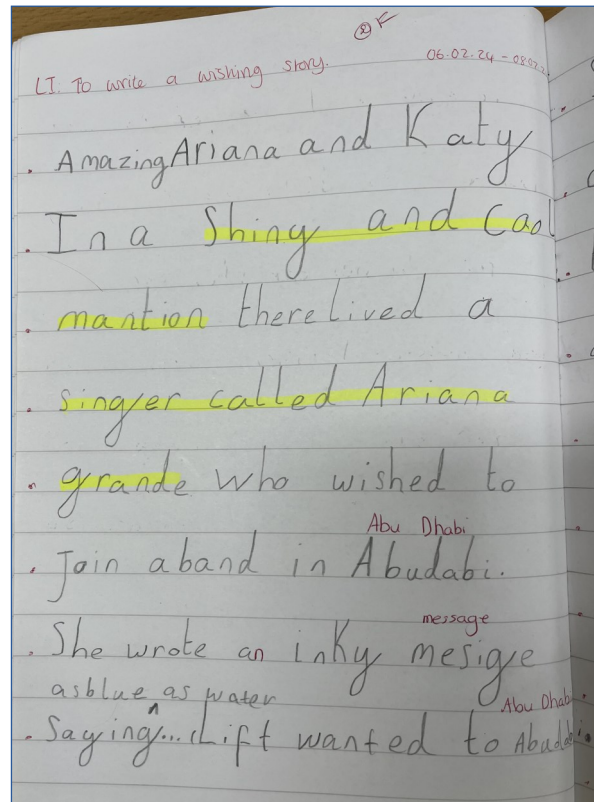 LI: To write a wishing story.
06.02.24 - 08.02.2
Amazing Ariana and Katy
In a Shiny and Cool
mantion there lived a
singer called Ariana
grande who wished to
Join a band in Abudabi.
Abu Dhabi
She wrote an inky mesige
message
as blue as water
Saying... Lift wanted to Abudabi
Abu Dhabi